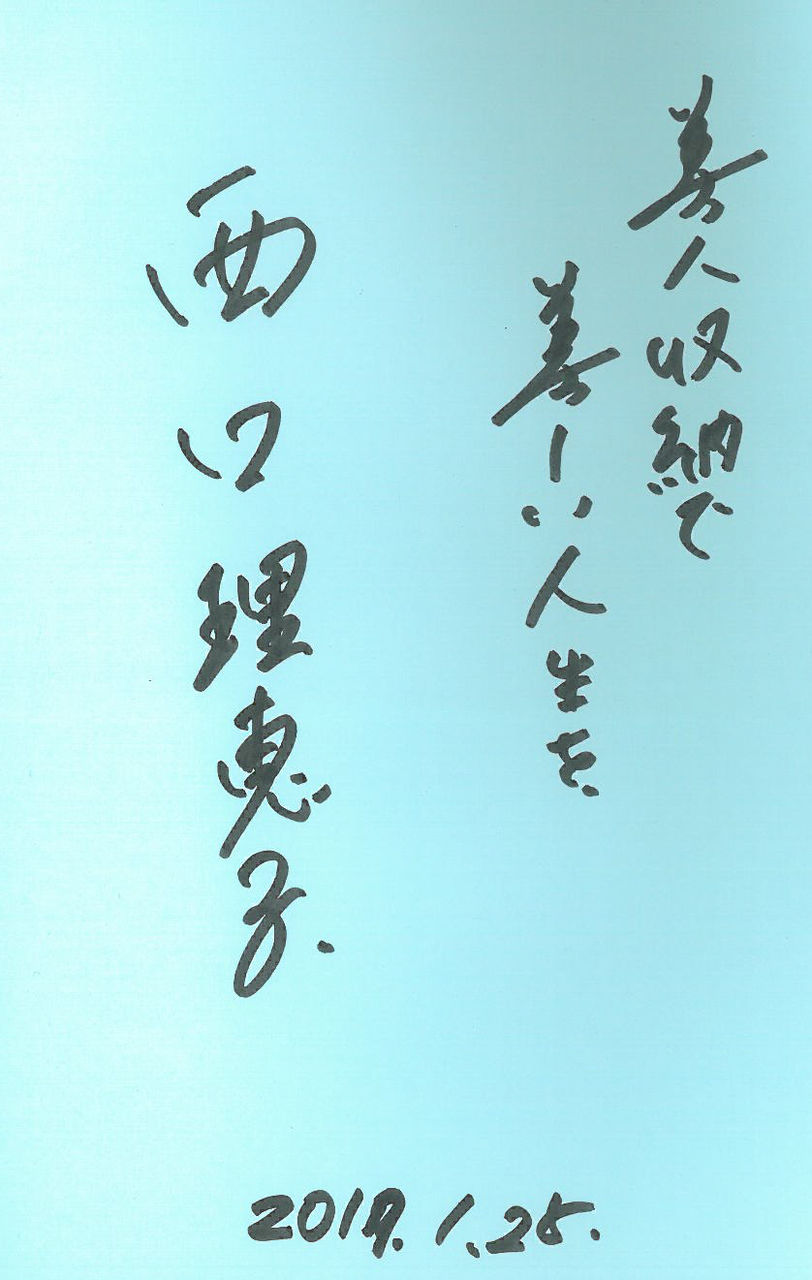 美人収納で
美しい人生を
西口理恵子
2019.1.25.